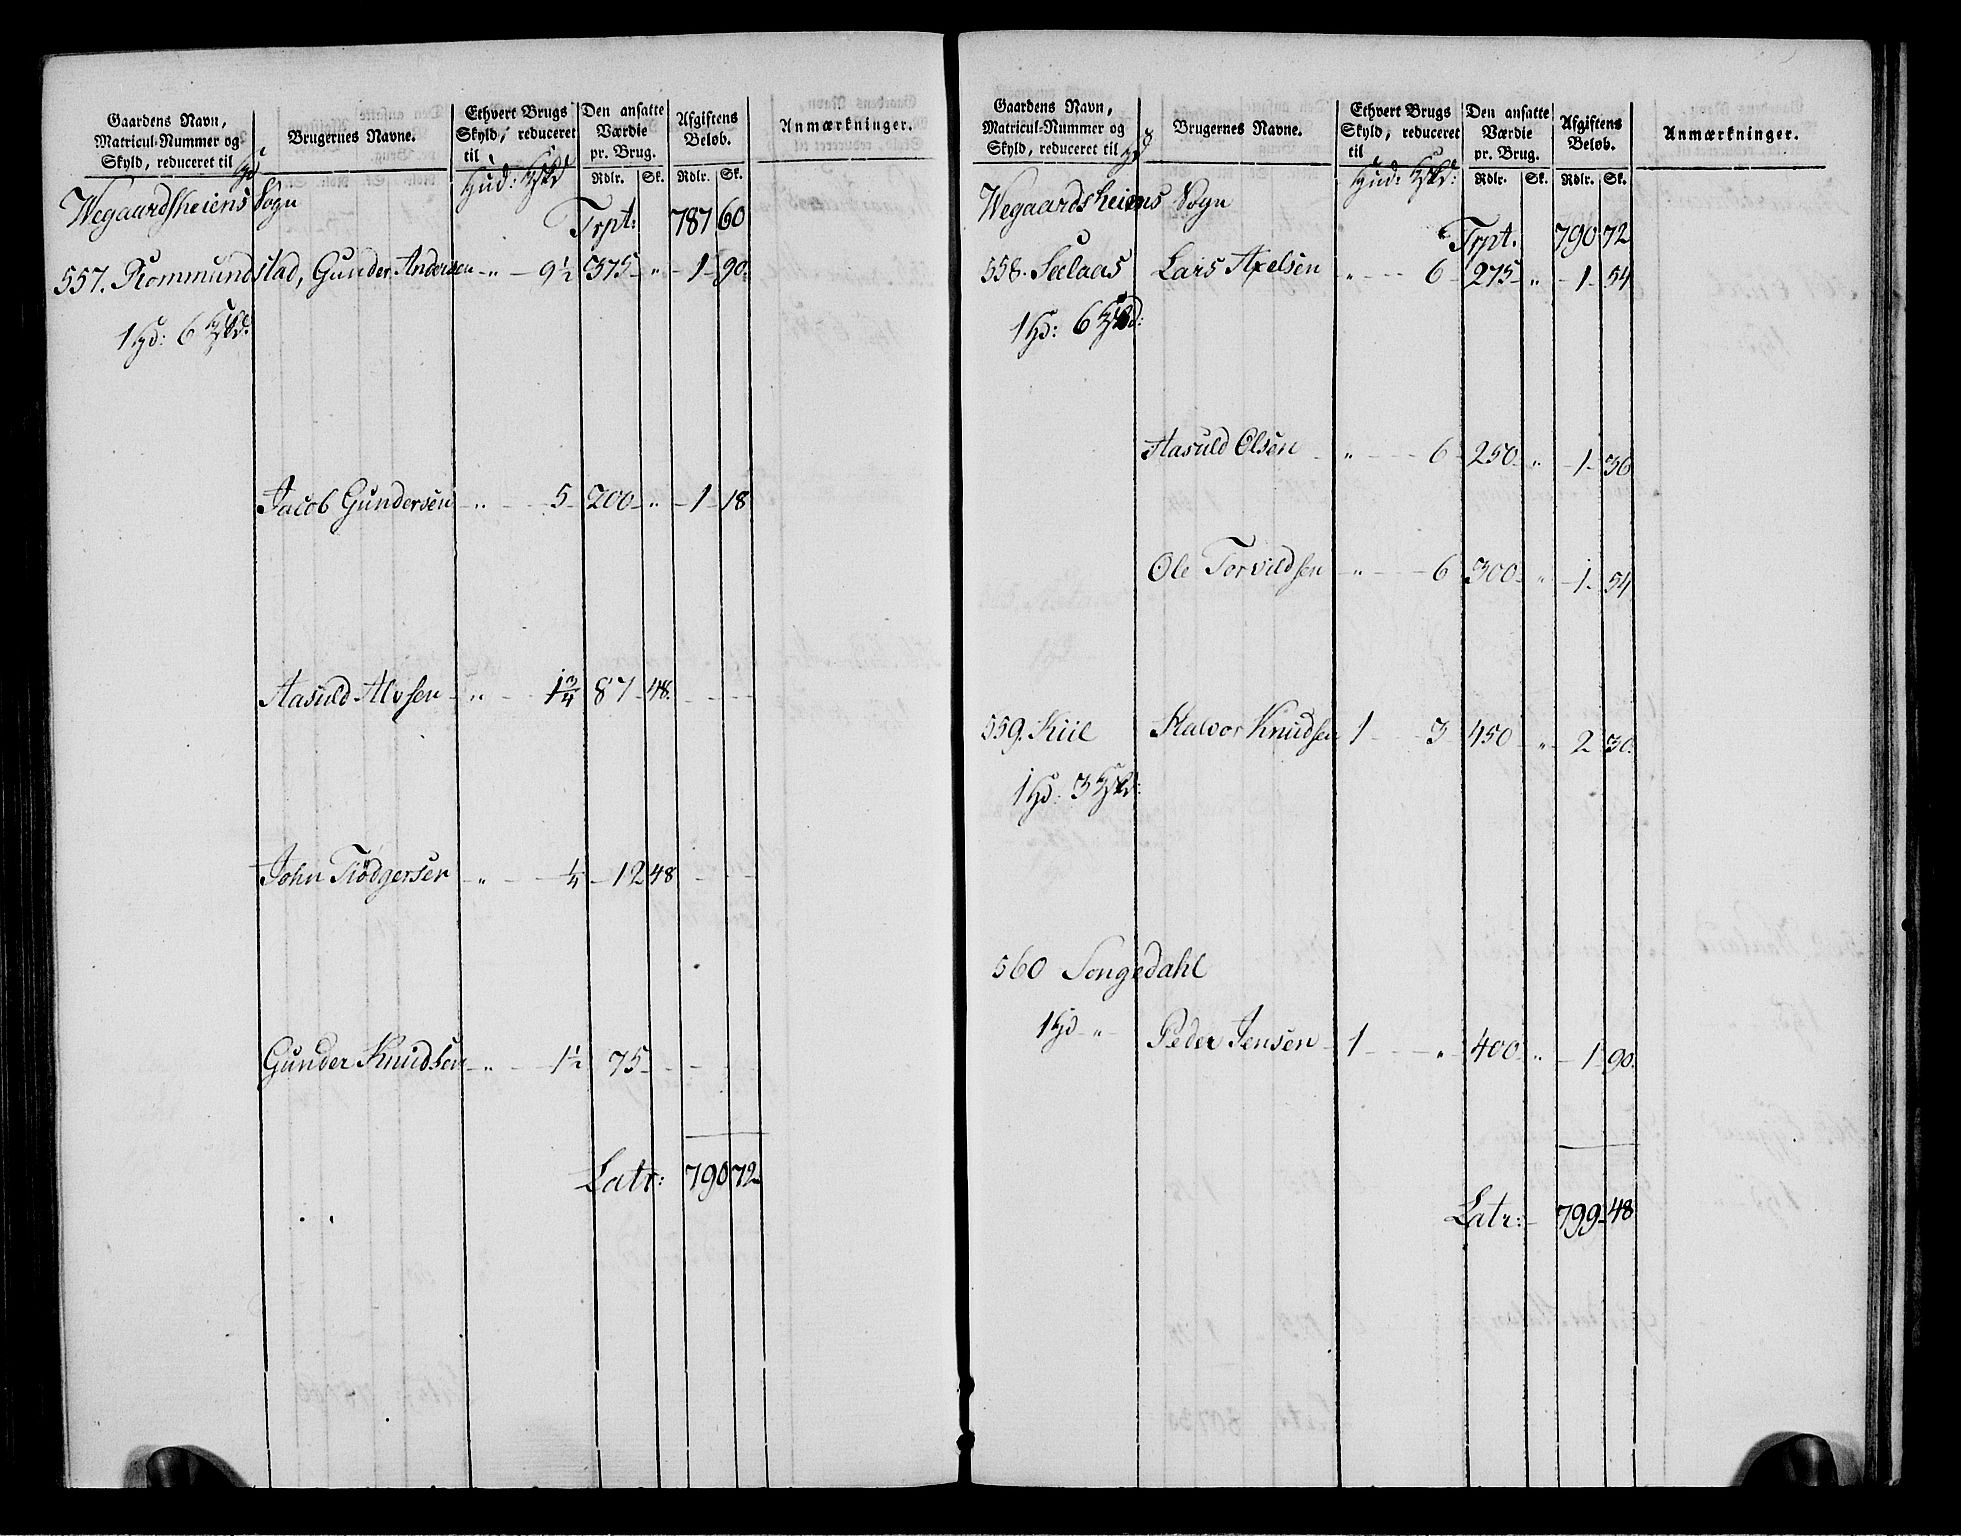 Gaardens Navn, Matricul-Nummer og Skyld, reduceret til Hd | Brugernes Navne. | Ethvert Brugs Skyld, reduceret til Hud: | Den ansatte Værdie pr. Brug. Rdlr. Sk. | Afgiftens Beløb. Rdlr. Sk. | Anmærkninger.
Wegaardsheiens Sogn
Trpt: 787 60
557. Rommundstad, Gunder Andersen " 9½ 375 " 1 90.
1 Hd: 6
Jacob Gundersen " 5 200 " 1 18
Aasuld Alvsen " 1¾ 87 48.
John Tiödgersen " ¼ 12 48
Gunder Knudsen " 1½ 75
Latr: 790 72
Gaardens Navn, Matricul-Nummer og Skyld, reduceret til Hd | Brugernes Navne. | Ethvert Brugs Skyld, reduceret til Hud: | Den ansatte Værdie pr. Brug. Rdlr. Sk. | Afgiftens Beløb. Rdlr. Sk. | Anmærkninger.
Wegaardsheiens Sogn
Trpt. 790 72
558. Seelaas Lars Axelsen " 6 275 " 1 54
1 Hd: 6
Aasuld Olsen " 6 250 " 1 36
Ole Torvildsen " 6 300 " 1 54
559. Kiil Halvor Knudsen 1 3 450 " 2 30.
1 Hd: 3
560 Songedahl
1 Hd " Peder Jensen 1 " 400 " 1 90.
Latr: 799 48